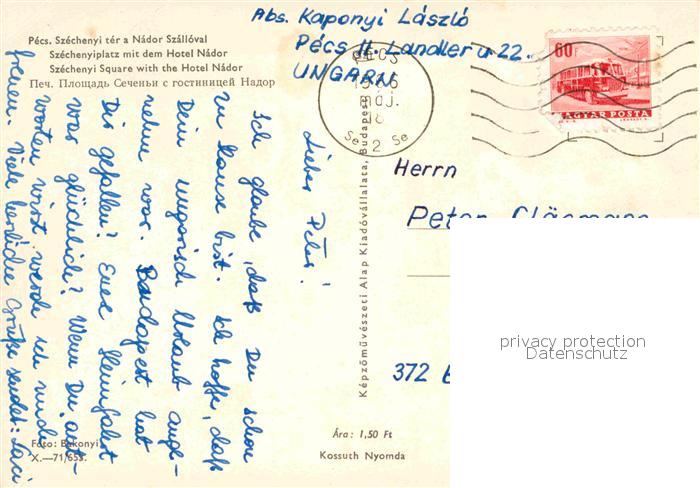 Pécs. Széchenyi tér a Nádor Szállóval
Széchenyiplatz mit dem Hotel Nádor
Széchenyi Square with the Hotel Nádor
Печ. Площадь Сеченьи с гостиницей Надор
Abs. Kaponyi László
Pécs II. Landler u. 22.
UNGARN
PÉCS
MÁJ.
18
Se 2 Se
60f
MAGYAR POSTA
Lieber Péter!
Ich glaube, daß Du schon
zu Hause bist. Ich hoffe, daß
Dein ungarisch Urlaub ange-
nehm war. Budapest hat
Dir gefallen? Eure Heimfahrt
war glücklich? Wenn Du ant-
worten wirst, werde ich mich
freuen. Viele herzliche Grüße sendet: Laci
Képzőművészeti Alap Kiadóvállalata, Budapest
Herrn
Peter
372
privacy protection
Datenschutz
Foto: Bakonyi
X.—71/655.
Ára: 1,50 Ft
Kossuth Nyomda